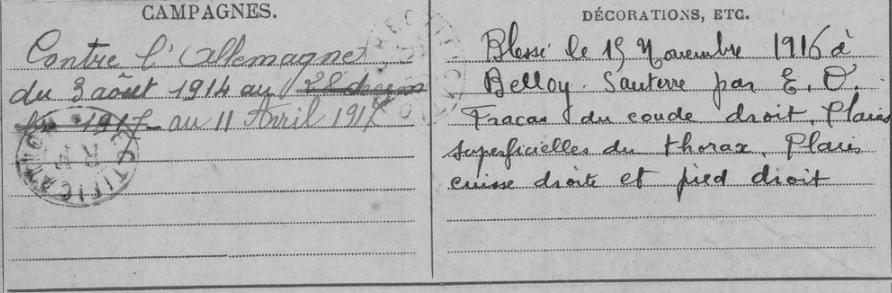 CAMPAGNES.
Contre l'Allemagne
du 3 août 1914 au
1917 au 11 Avril 1917
RECTIFICATION
DÉCORATIONS, ETC.
Blessé le 15 Novembre 1916 à
Belloy-Santerre par E. O.
Fracas du coude droit, Plaies
superficielles du thorax, Plaies
cuisse droite et pied droit